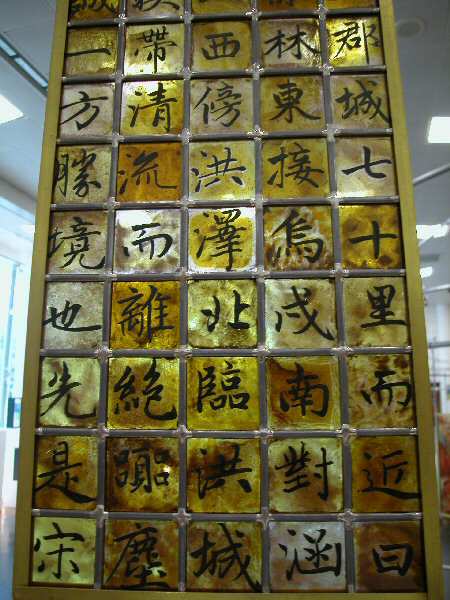 郡城七十里而近曰
林東接烏戍南對涵
西傍洪澤北臨洪城
帶清流而離絶塵
一方勝境也先是宋